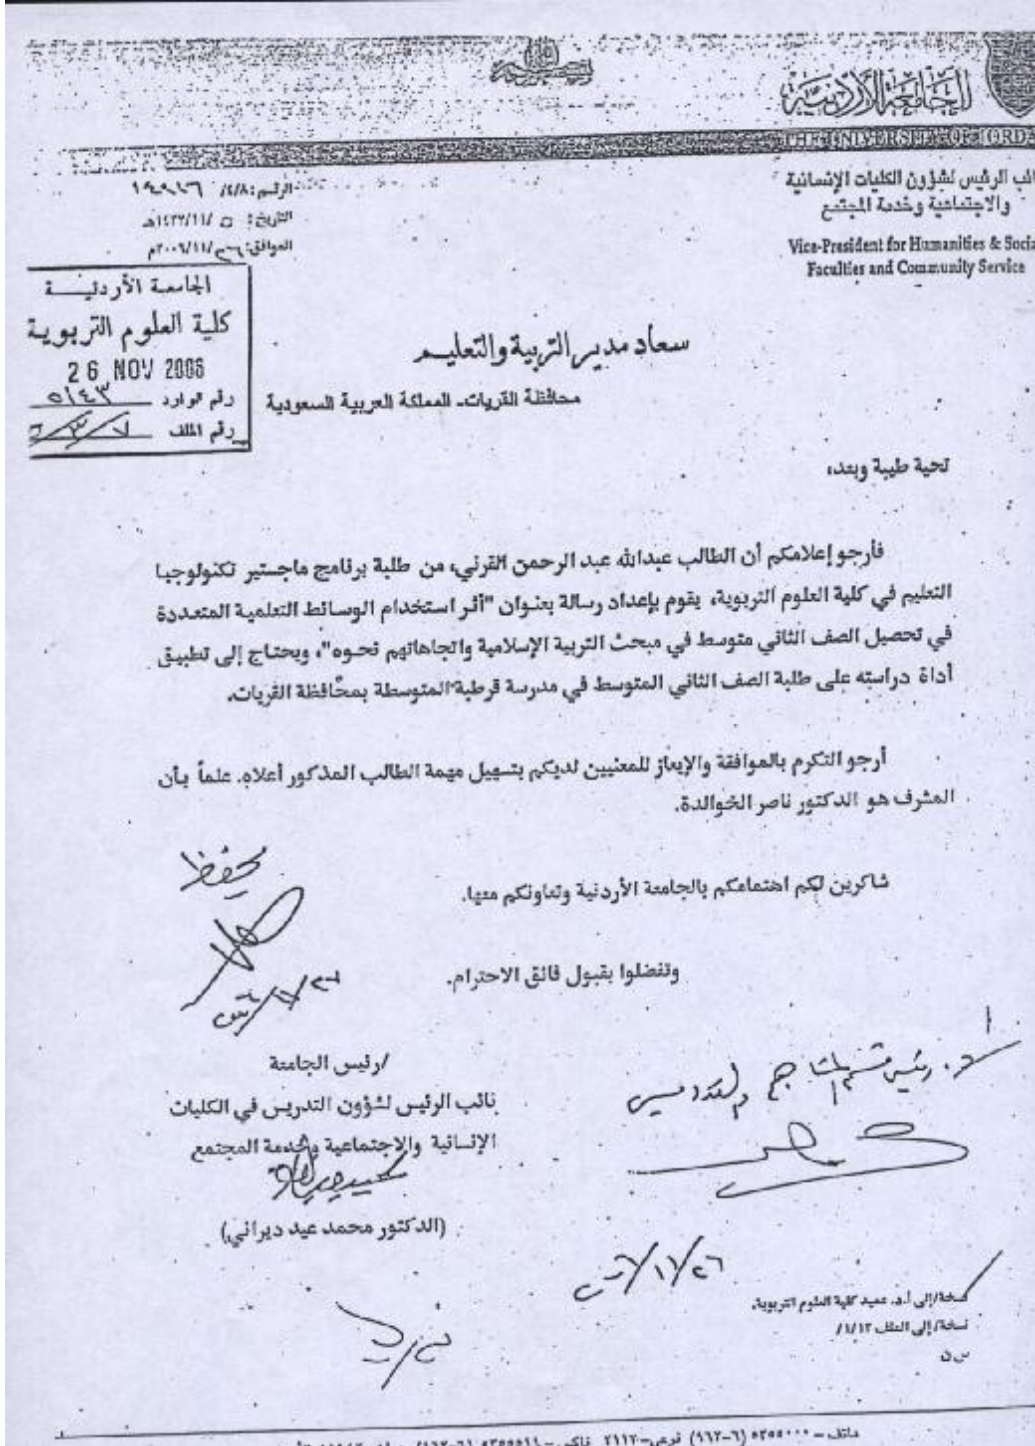 الجامعة الأردنية
THE UNIVERSITY OF JORDA
ائب الرئيس لشؤون الكليات الإنسانية
والاجتماعية وخدمة المجتمع
Vice-President for Humanities & Socia
Faculties and Community Service
الرقم: /٤/٨
التاريخ: ٥ /١١/
الموافق: ٢٦/١١/٢٠٠٦م
الجامعة الأردنيـــــة
كلية العلوم التربويـة
26 NOV 2006
رقم الوارد ٥١٤٣
رقم الملف ٧/٣/
سعادة مدير التربية والتعليـم
محافظة القريات- المملكة العربية السعودية
تحية طيبة وبعد،
فأرجو إعلامكم أن الطالب عبدالله عبد الرحمن القرني، من طلبة برنامج ماجستير تكنولوجيا
التعليم في كلية العلوم التربوية، يقوم بإعداد رسالة بعنوان "أثر استخدام الوسائط التعلمية المتعددة
في تحصيل الصف الثاني متوسط في مبحث التربية الإسلامية واتجاهاتهم نحـوه"، ويحتـاج إلى تطبيـق
أداة دراسته على طلبة الصف الثاني المتوسط في مدرسة قرطبة المتوسطة بمحافظة القريات.
أرجو التكرم بالموافقة والإيعاز للمعنيين لديكم بتسهيل مهمة الطالب المذكور أعلاه. علماً بأن
المشرف هو الدكتور ناصر الخوالدة.
شاكرين لكم اهتمامكم بالجامعة الأردنية وتعاونكم معها.
وتفضلوا بقبول فائق الاحترام.
يحفظ
/رئيس الجامعة
نائب الرئيس لشؤون التدريس في الكليات
الإنسانية والاجتماعية وخدمة المجتمع
(الدكتور محمد عيد ديراني)
أ.د. رئيس قسم المناهج والتدريس
٢٦/١١/
نسخة/إلى أ.د. عميد كلية العلوم التربوية.
نسخة/إلى الملف ١/١٣/
س ن
هاتف – ٥٣٥٥٠٠٠ (٦-٩٦٢) فرعي-٢١١٢ فاكس –